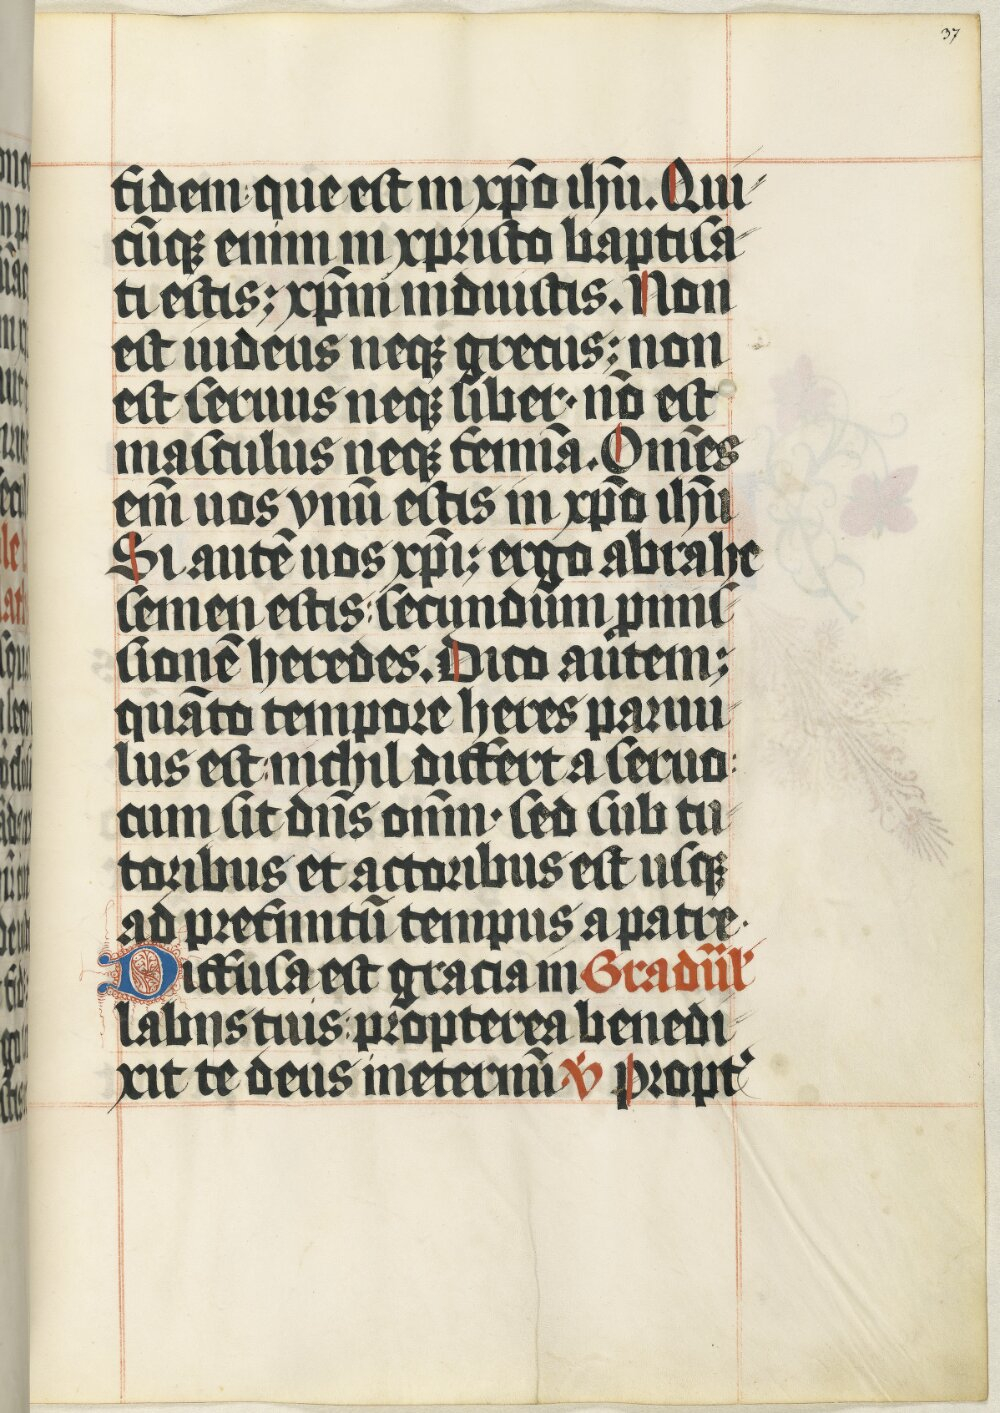 37
fidem que est in xp̄o ihū. Qui
cūq; enim in xpristo baptisa
ti estis; xp̄m induistis. Non
est iudeus neq; grecus; non
est seruus neq; liber. nō est
masculus neq; femīa. Om̄es
em̄ uos vnū estis in xp̄o ihū
Si autē uos xp̄i; ergo abrahe
semen estis: secundum pmis
sionē heredes. Dico autem;
quāto tempore heres paruu
lus est: nichil differt a seruo:
cum sit dn̄s om̄m. sed sub tu
toribus et actoribus est usq;
ad prefinitū tempus a patre.
Diffusa est gracia in Graduūl
labiis tuis: propterea benedi
xit te deus in eternū v̇ propt̾